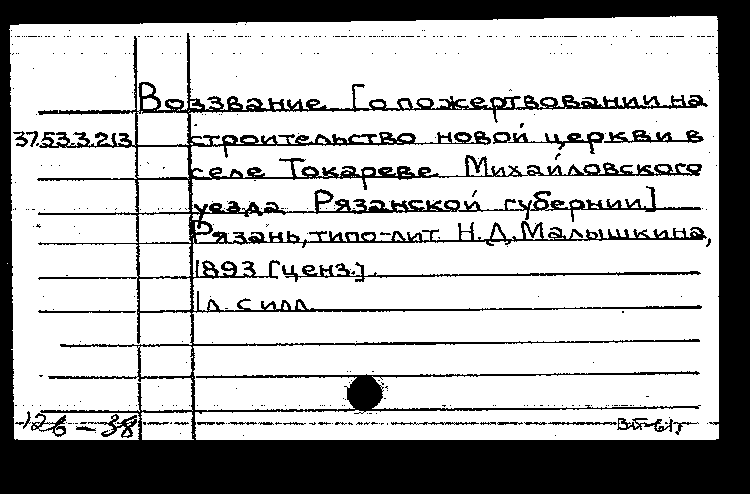 Воззвание [о пожертвовании на
37.53.3.213 строительство новой церкви в
селе Токареве Михайловского
уезда Рязанской губернии]
Рязань, типо-лит. Н.Д. Малышкина,
1893 [ценз.]
1 л. с илл.
126-38